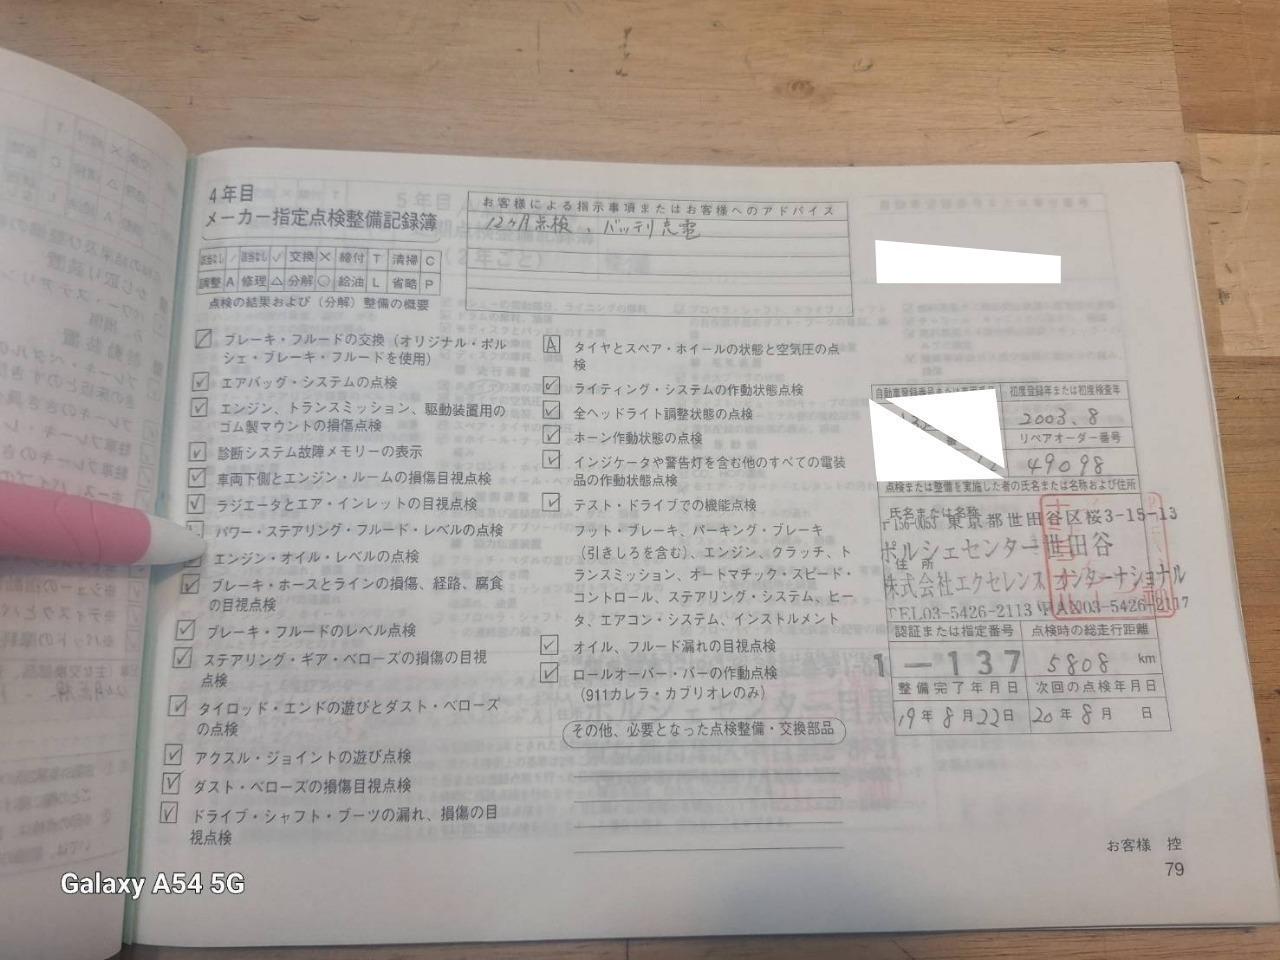 4年目
メーカー指定点検整備記録簿
該当なし / 該当なし ✓ 交換 × 締付 T 清掃 C
調整 A 修理 △ 分解 ○ 給油 L 省略 P
点検の結果および（分解）整備の概要
ブレーキ・フルードの交換（オリジナル・ポル
シェ・ブレーキ・フルードを使用）
エアバッグ・システムの点検
エンジン、トランスミッション、駆動装置用の
ゴム製マウントの損傷点検
診断システム故障メモリーの表示
車両下側とエンジン・ルームの損傷目視点検
ラジエータとエア・インレットの目視点検
パワー・ステアリング・フルード・レベルの点検
エンジン・オイル・レベルの点検
ブレーキ・ホースとラインの損傷、経路、腐食
の目視点検
ブレーキ・フルードのレベル点検
ステアリング・ギア・ベローズの損傷の目視
点検
タイロッド・エンドの遊びとダスト・ベローズ
の点検
アクスル・ジョイントの遊び点検
ダスト・ベローズの損傷目視点検
ドライブ・シャフト・ブーツの漏れ、損傷の目
視点検
お客様による指示事項またはお客様へのアドバイス
12ヶ月点検、バッテリ充電
A タイヤとスペア・ホイールの状態と空気圧の点
検
ライティング・システムの作動状態点検
全ヘッドライト調整状態の点検
ホーン作動状態の点検
インジケータや警告灯を含む他のすべての電装
品の作動状態点検
テスト・ドライブでの機能点検
フット・ブレーキ、パーキング・ブレーキ
（引きしろを含む）、エンジン、クラッチ、ト
ランスミッション、オートマチック・スピード・
コントロール、ステアリング・システム、ヒー
タ、エアコン・システム、インストルメント
オイル、フルード漏れの目視点検
ロールオーバー・バーの作動点検
（911カレラ・カブリオレのみ）
その他、必要となった点検整備・交換部品
初度登録年または初度検査年
2003.8
リペアオーダー番号
49098
点検または整備を実施した者の氏名または名称および住所
氏名または名称
東京都世田谷区桜3-15-13
ポルシェセンター世田谷
住所
株式会社エクセレンス インターナショナル
TEL03-5426-2113 FAX03-5426-2117
認証または指定番号 点検時の総走行距離
1-137 5808 km
整備完了年月日 次回の点検年月日
19年8月22日 20年8月 日
お客様 控
79
Galaxy A54 5G